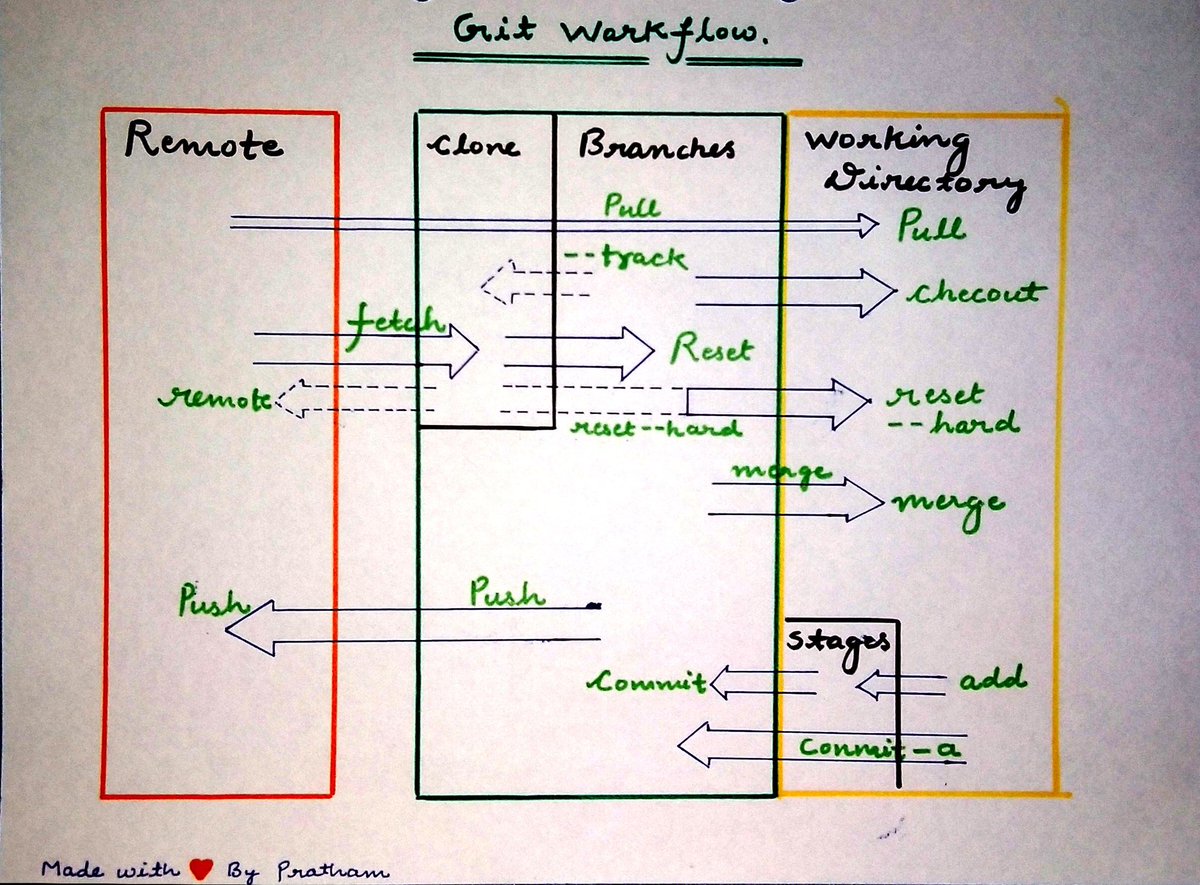 Git Workflow.
Remote
Clone
Branches
Working
Directory
Pull
Pull
--track
checout
fetch
Reset
remote
reset
--hard
reset--hard
merge
merge
Push
Push
Stages
Commit
add
Commit-a
Made with ❤ By Pratham